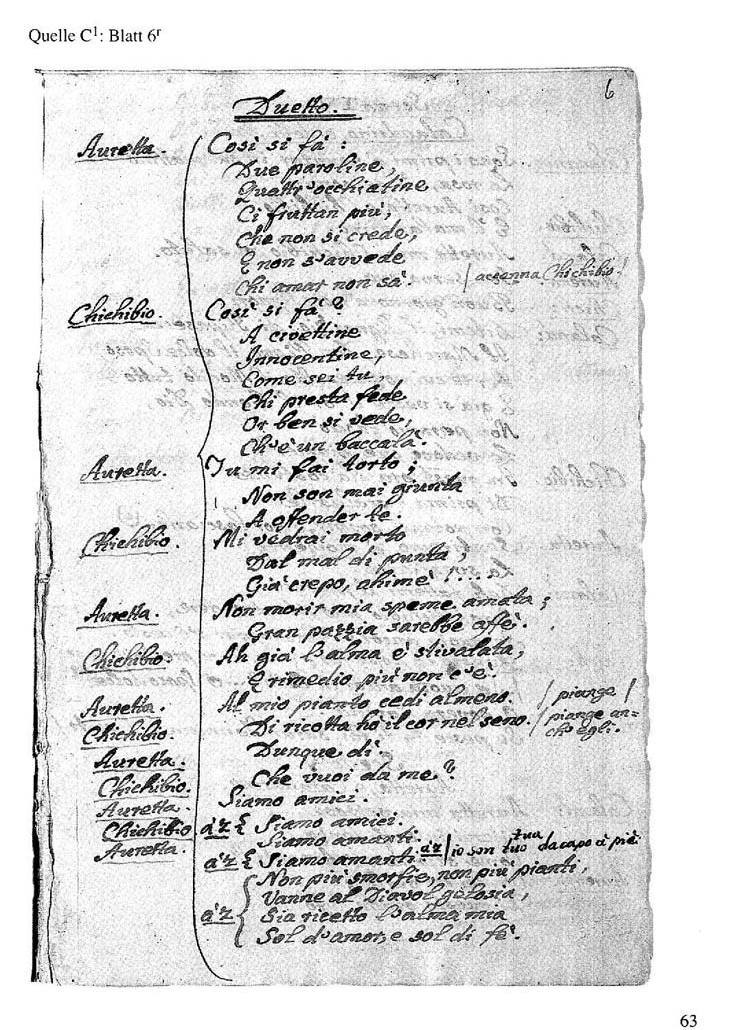 Quelle C1: Blatt 6r
6
Duetto.
Auretta. Così si fà :
Due paroline,
Quattr'occhiatine
Ci fruttan più,
Che non si crede,
E non s'avvede
Chi amar non sà. / accenna Chichibio /
Chichibio. Così si fà?
A civettine
Innocentine,
Come sei tu,
Chi presta fede
Or ben si vede,
Ch'è un baccalà.
Auretta. Tu mi fai torto ;
Non son mai giunta
A offender te.
Chichibio. Mi vedrai morto
Dal mal di punta ;
Già crepo, ahimè !...
Auretta. Non morir mia speme amata ;
Gran pazzia sarebbe affè.
Chichibio. Ah già l'alma è stivalata,
E rimedio più non c'è.
Auretta. Al mio pianto cedi almeno. / piange /
Chichibio. Di ricotta hò il cor nel seno. / piange an=
ch'egli.
Auretta. Dunque dì.
Chichibio. Che vuoi da me?
Auretta. Siamo amici.
Chichibio a'2 { Siamo amici.
Auretta. Siamo amanti.
a'2 { Siamo amanti. a'2 / io son tuo tua da capo a piè.
Non più smorfie, non più pianti,
Vanne al Diavol gelosia,
a'2 { Sia ricetto l'alma mia
Sol d'amor, e sol di fè.
63